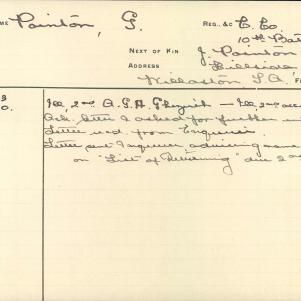 ME Painton, G. REG., &C E. Co
10th Bat
NEXT OF KIN J Painton
ADDRESS Hillside
Willaston S.A.
Ill, 2nd A.G.H. Ghezireh — Ill, 2nd
Ack. letter & asked for further
Letter recd. from Enquirer.
Letter sent Enquirer advising name
on "List of Returning" due 2